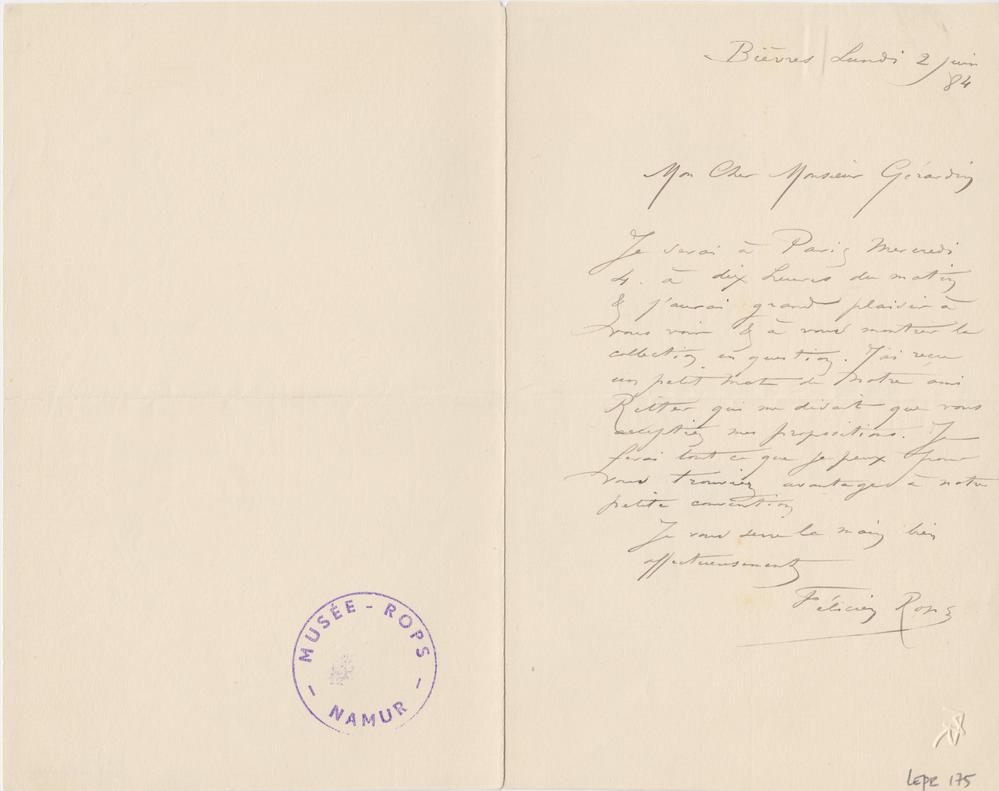 MUSÉE - ROPS
- NAMUR -
Bièvres Lundi 2 juin
84
Mon Cher Monsieur Gérardin
Je serai à Paris Mercredi
4. à dix heures du matin
& j'aurai grand plaisir à
vous voir & à vous montrer la
collection en question. J'ai reçu
un petit mot de notre ami
Ritter qui me disait que vous
acceptiez mes propositions. Je
ferai tout ce que je peux pour
vous trouviez avantages à notre
petite convention
Je vous serre la main bien
affectueusement
Félicien Rops
LEpr 175